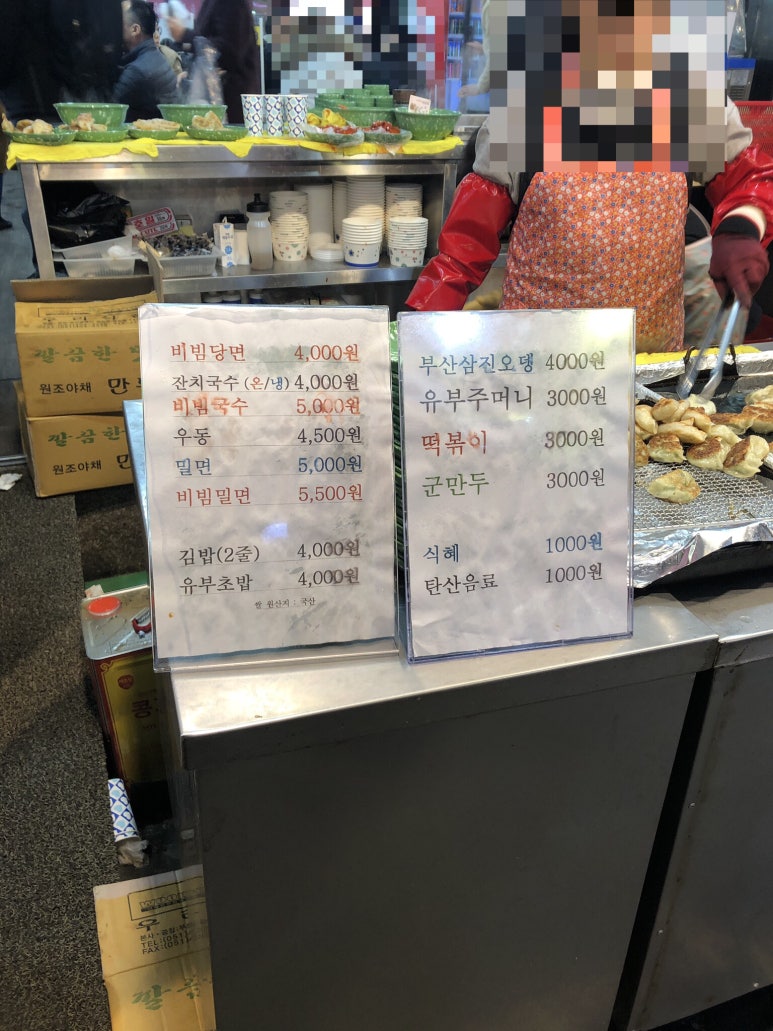 비빔당면 4,000원
잔치국수 (온/냉) 4,000원
비빔국수 5,000원
우동 4,500원
밀면 5,000원
비빔밀면 5,500원
김밥(2줄) 4,000원
유부초밥 4,000원
쌀 원산지 : 국산
부산삼진오뎅 4000원
유부주머니 3000원
떡볶이 3000원
군만두 3000원
식혜 1000원
탄산음료 1000원
깔끔한
원조야채 만
깔끔한
원조야채 만
콩
TEL:(051
FAX:(051